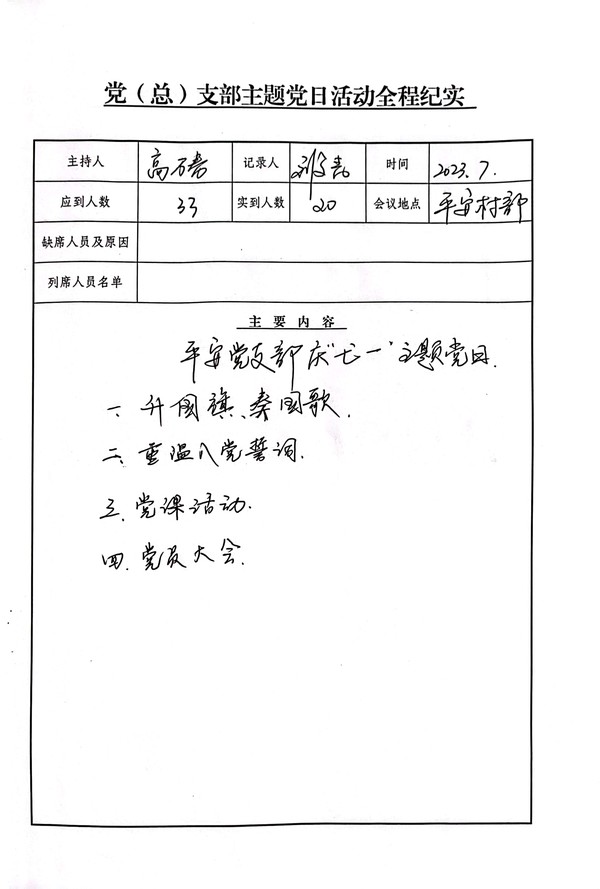 党（总）支部主题党日活动全程纪实
主持人 高 记录人 时间 2023.7.
应到人数 33 实到人数 20 会议地点 平安村部
缺席人员及原因
列席人员名单
主要内容
平安党支部庆“七一”主题党日.
一、升国旗、奏国歌.
二、重温入党誓词.
三、党课活动.
四、党员大会.